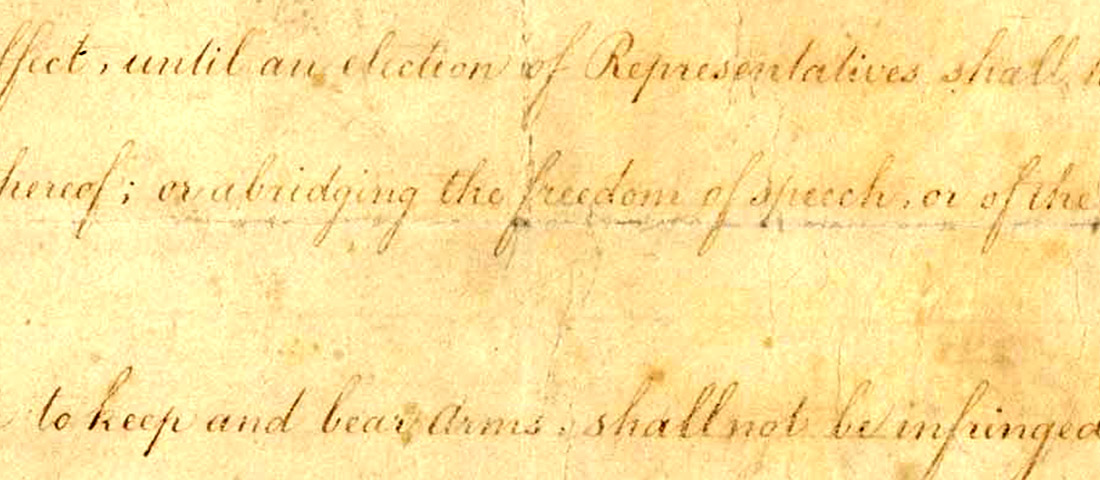 ffect, until an election of Representatives shall
hereof; or abridging the freedom of speech, or of the
to keep and bear Arms, shall not be infringed